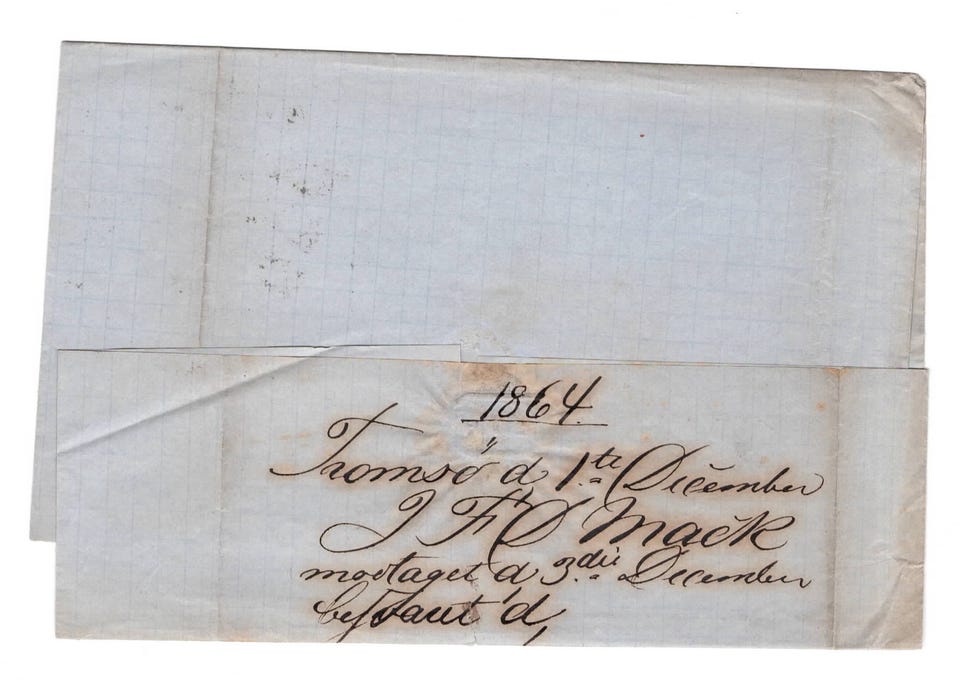 1864.
Tromsö d 1ste December
J Fr D Mack
modtaget d 3die December
besvaret d,